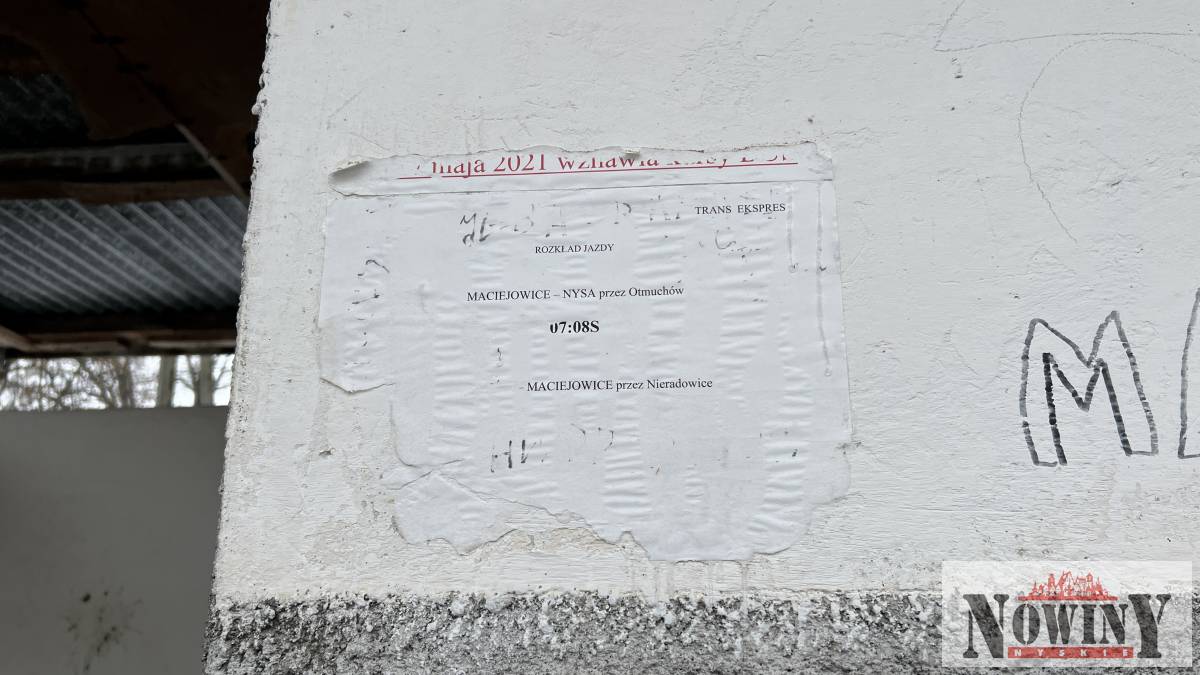 maja 2021 wznawia
TRANS EKSPRES
ROZKŁAD JAZDY
MACIEJOWICE – NYSA przez Otmuchów
07:08S
- MACIEJOWICE przez Nieradowice
M
NOWINY
NYSKIE